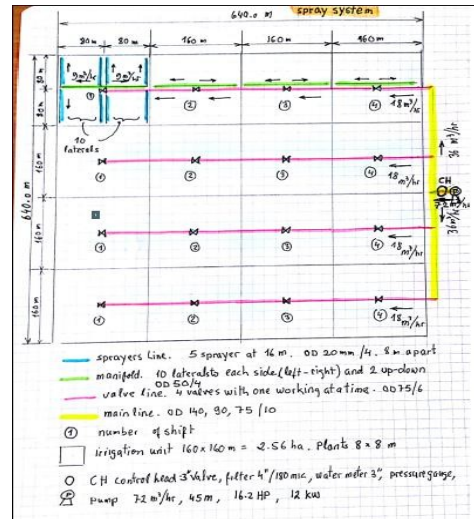 spray system
640.0 m
80 m 80 m 160 m 160 m 160 m
80 m
9 m³/hr 9 m³/hr
80 m
① ② ③ ④ 18 m³/hr
10 laterals
36 m³/hr
160 m
① ② ③ ④ 18 m³/hr
640.0 m
CH P
72 m³/hr
36 m³/hr
160 m
① ② ③ ④ 18 m³/hr
160 m
① ② ③ ④ 18 m³/hr
sprayers line. 5 sprayer at 16 m. OD 20 mm /4. 8 m apart
manifold. 10 laterals to each side (left-right) and 2 up-down
OD 50/4
valve line. 4 valves with one working at a time. OD 75/6
main line. OD 140, 90, 75 /10
① number of shift
irrigation unit 160 x 160 m = 2.56 ha. Plants 8 x 8 m
CH control head 3" valve, filter 4"/180 mic, water meter 3", pressure gauge,
P pump 72 m³/hr, 45 m, 16.2 HP, 12 kw